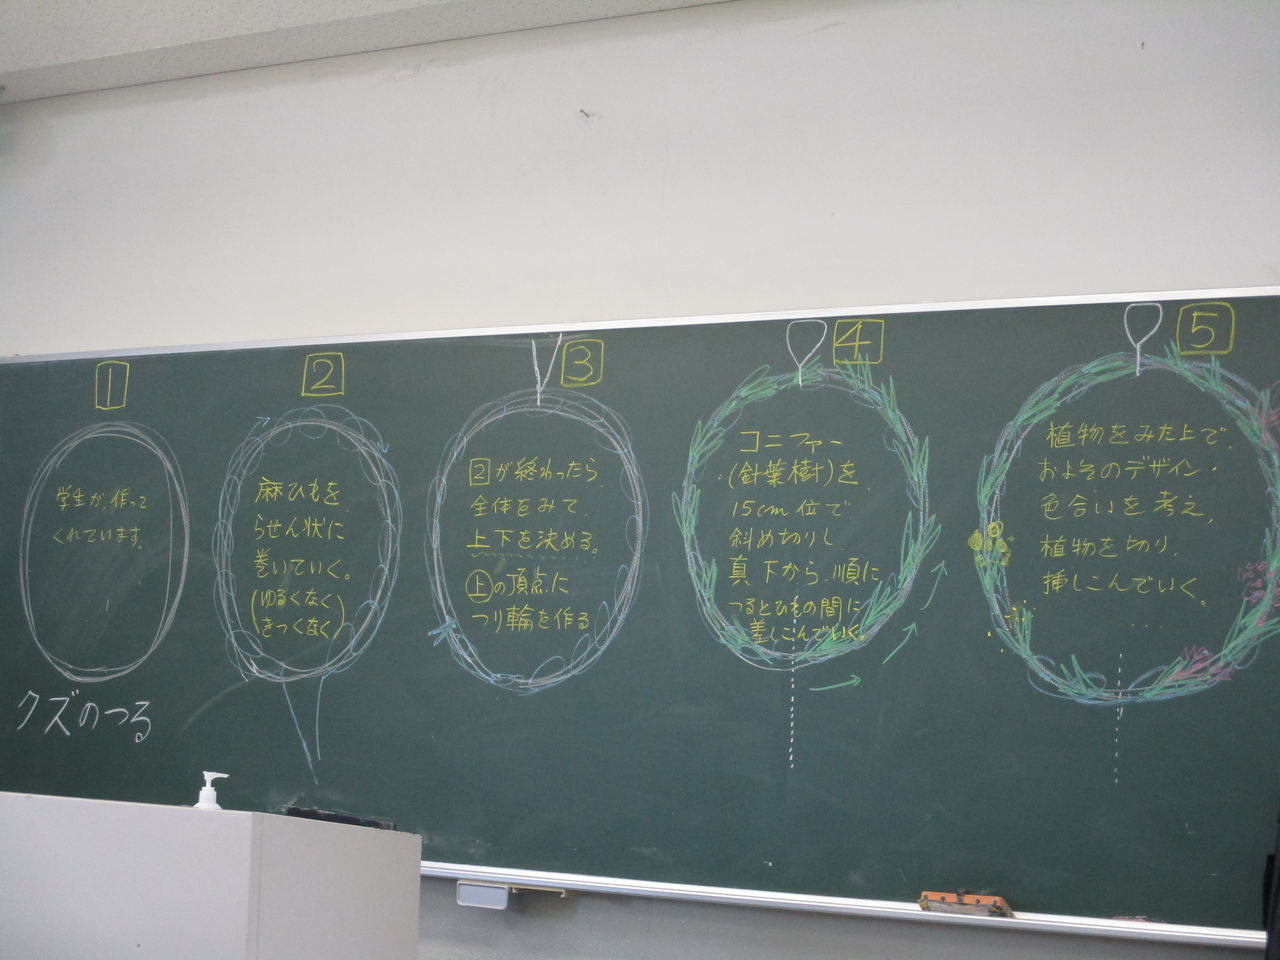 1
学生が、作って
くれています。
クズのつる
2
麻ひもを
らせん状に
巻いていく。
(ゆるくなく
きつくなく)
3
2が終わったら、
全体をみて、
上下を決める。
上の頂点に
つり輪を作る
4
コニファー
(針葉樹)を
15cm位で
斜め切りし
真下から、順に
つるとひもの間に
差しこんでいく。
5
植物をみた上で、
およそのデザイン・
色合いを考え、
植物を切り、
挿しこんでいく。